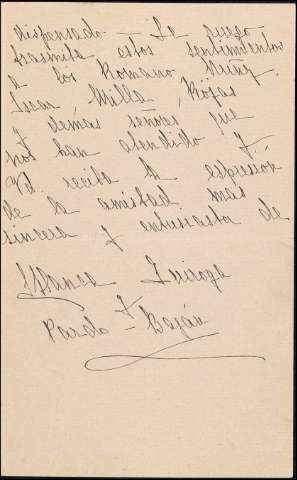 dispensado — Le ruego
trasmita estos sentimientos
a los Romano Muñoz,
Milla, Rojas
y demas señores que
nos han atendido y
Vd. reciba la espresión
de la amistad mas
sincera y entusiasta de
Blanca Quiroga
y
Pardo - Bazán